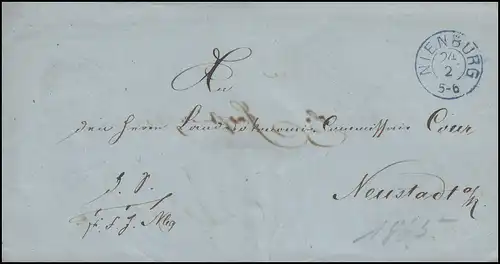 NIENBURG
24
2
5-6
An
den Herrn Landesökonomie Commissair Cour
Neustadt a/R
1865